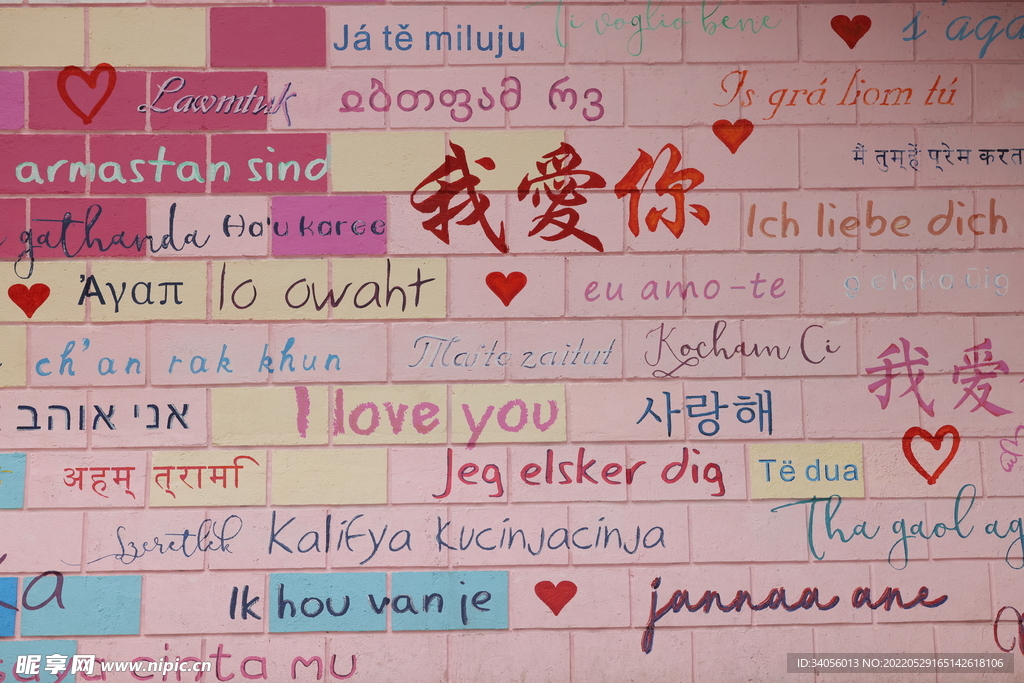 Já tě miluju
Ti voglio bene
s'aga
Lawmtuk
Is grá liom tú
armastan sind
我愛你
मैं तुम्हें प्रेम करता
gathanda
Ha'u karee
Ich liebe dich
Ἀγαπ
lo owaht
eu amo-te
g elska Þig
ch'an rak khun
Kocham Ci
我愛
אני אוהב
I love you
사랑해
अहम्
Jeg elsker dig
Të dua
Szeretlek
Kalifya Kucinjacinja
Tha gaol ag
Ik hou van je
jannaa ane
saya cinta mu
昵享网 www.nipic.cn
ID:34056013 NO:20220529165142618106